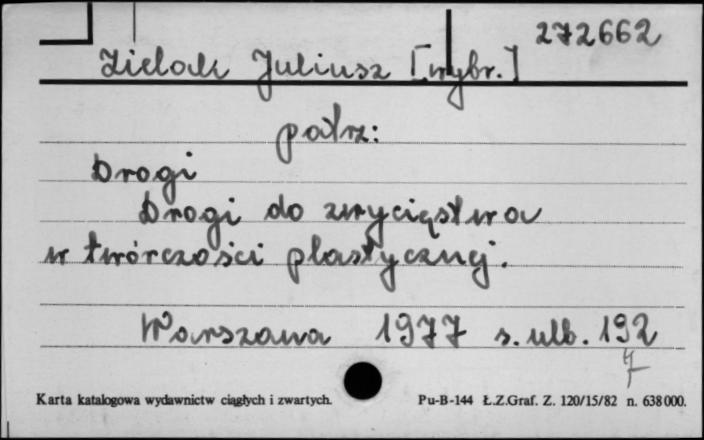 272662
Zielak Juliusz [wybr.]
patrz:
Drogi
Drogi do zwycięstwa
w twórczości plastycznej.
Warszawa 1977 s. nlb. 192
7
Karta katalogowa wydawnictw ciągłych i zwartych. Pu-B-144 Ł.Z.Graf. Z. 120/15/82 n. 638000.